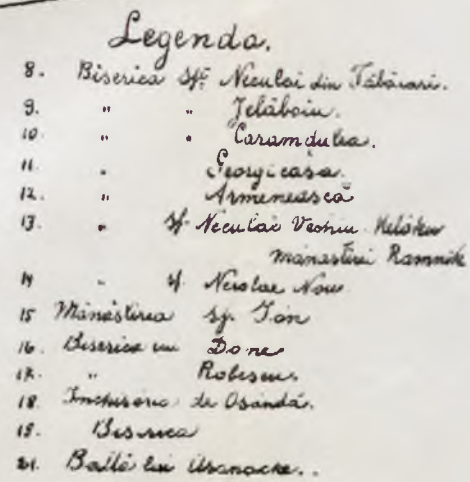 Legenda.
8. Biserica Sf. Neculai din Tăbăcari.
9. " " Jelăboiu.
10 " " Caramdulea.
11. " Georgieasa.
12. " Armenească
13. " Sf. Neculai Vechiu
Mănăstirei
14 " sf. Nicolae Nou
15 Mănăstirea Sf. Ion
16. Biserica Done
17. " Robescu.
18. Inchisoria de Osândă.
19. Biserica
21. Balta lui